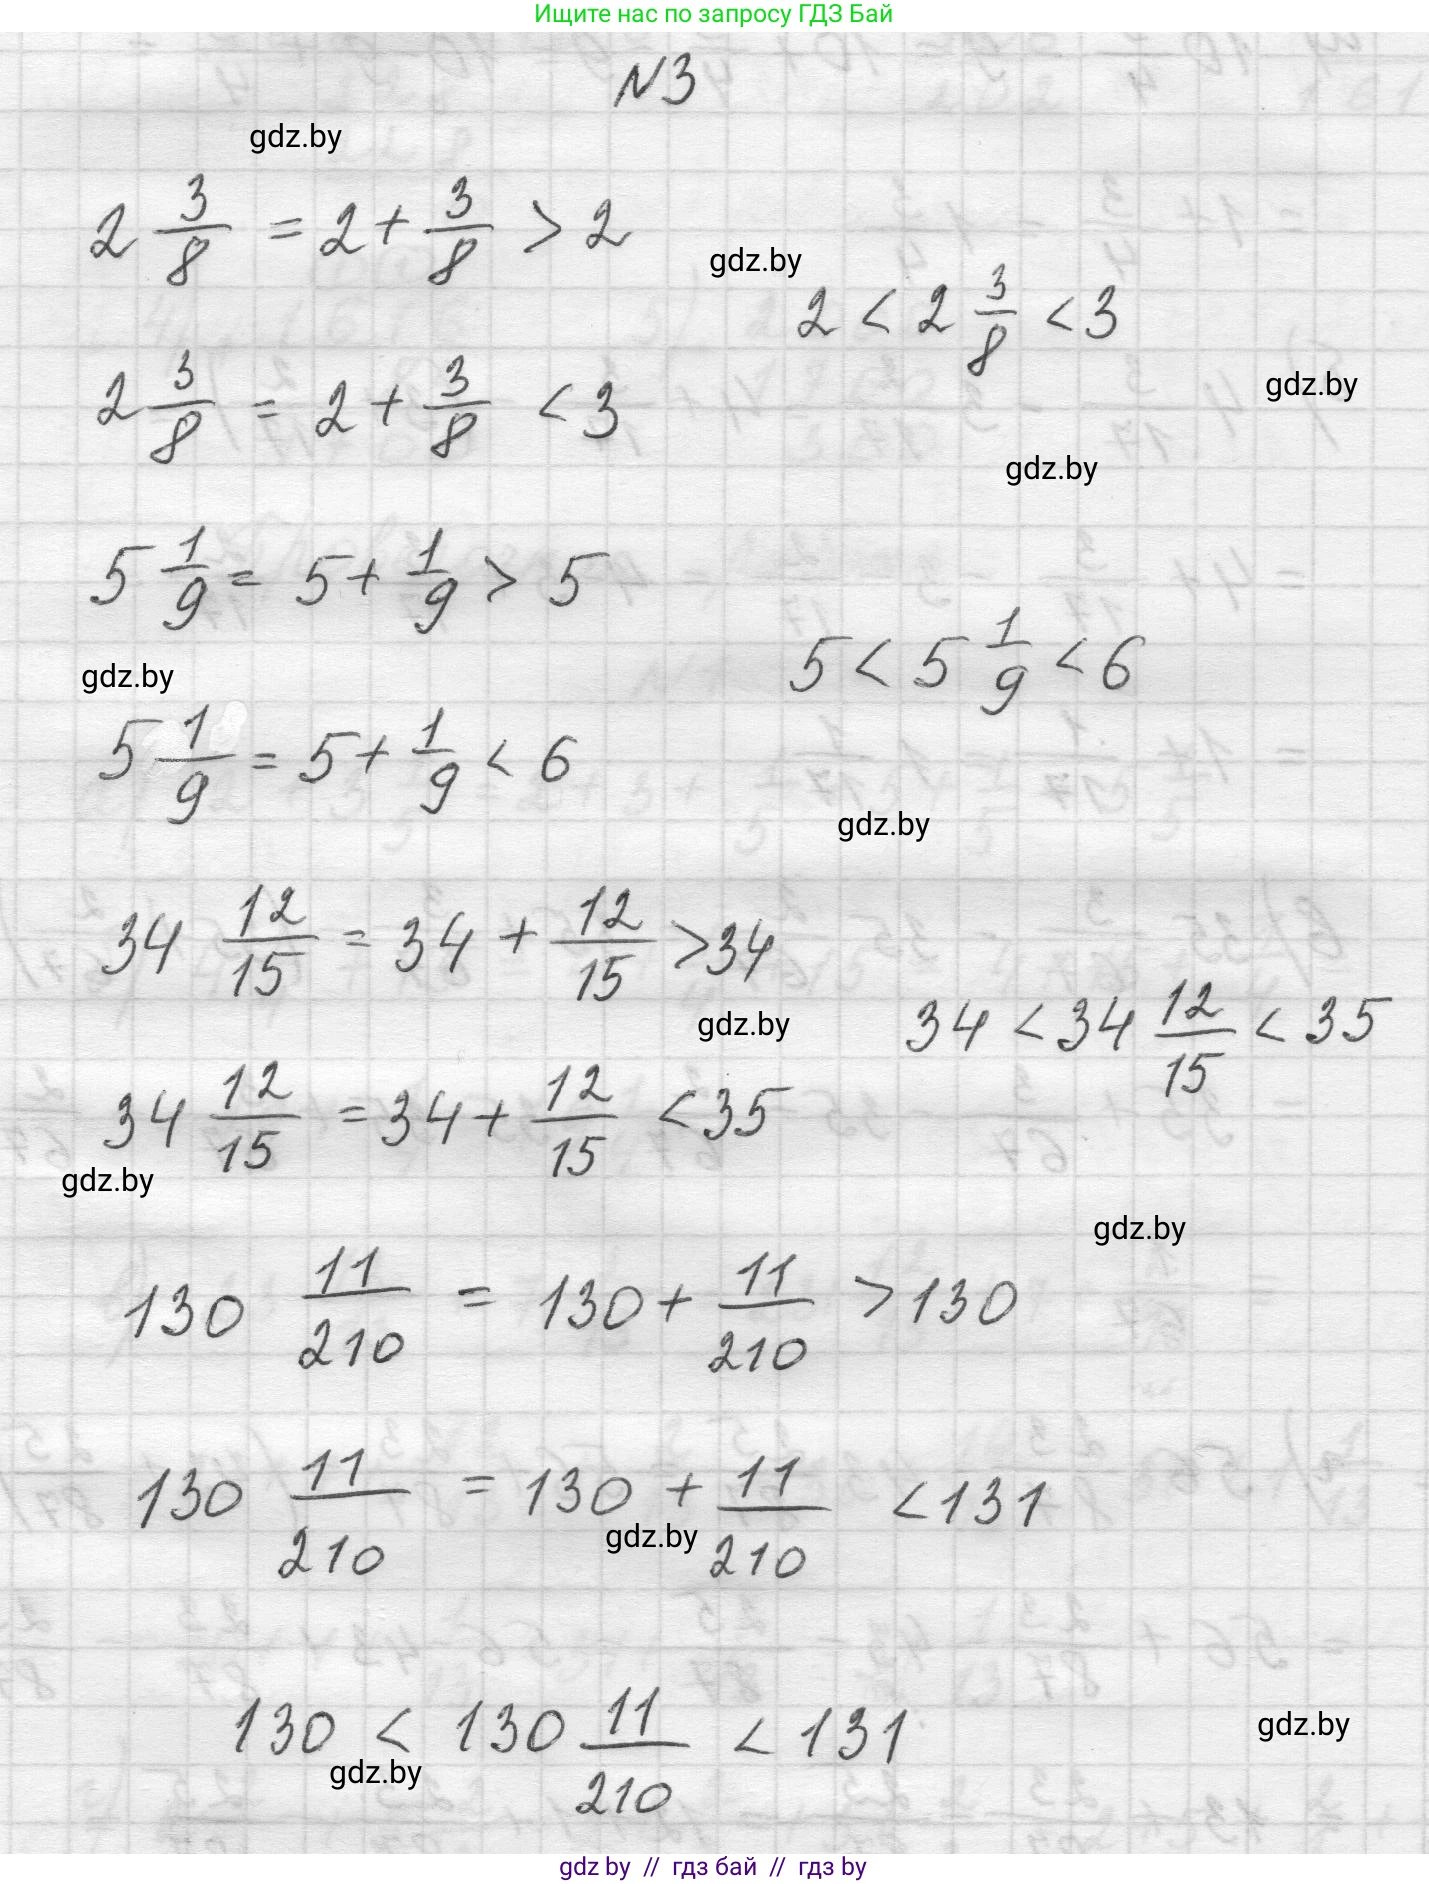 Ищите нас по запросу ГДЗ Бай
№3
gdz.by
2 3/8 = 2 + 3/8 > 2
gdz.by
2 < 2 3/8 < 3
2 3/8 = 2 + 3/8 < 3
gdz.by
gdz.by
5 1/9 = 5 + 1/9 > 5
5 < 5 1/9 < 6
gdz.by
5 1/9 = 5 + 1/9 < 6
gdz.by
34 12/15 = 34 + 12/15 > 34
gdz.by
34 < 34 12/15 < 35
34 12/15 = 34 + 12/15 < 35
gdz.by
gdz.by
130 11/210 = 130 + 11/210 > 130
130 11/210 = 130 + 11/210 < 131
gdz.by
130 < 130 11/210 < 131
gdz.by
gdz.by
gdz by // гдз бай // гдз by